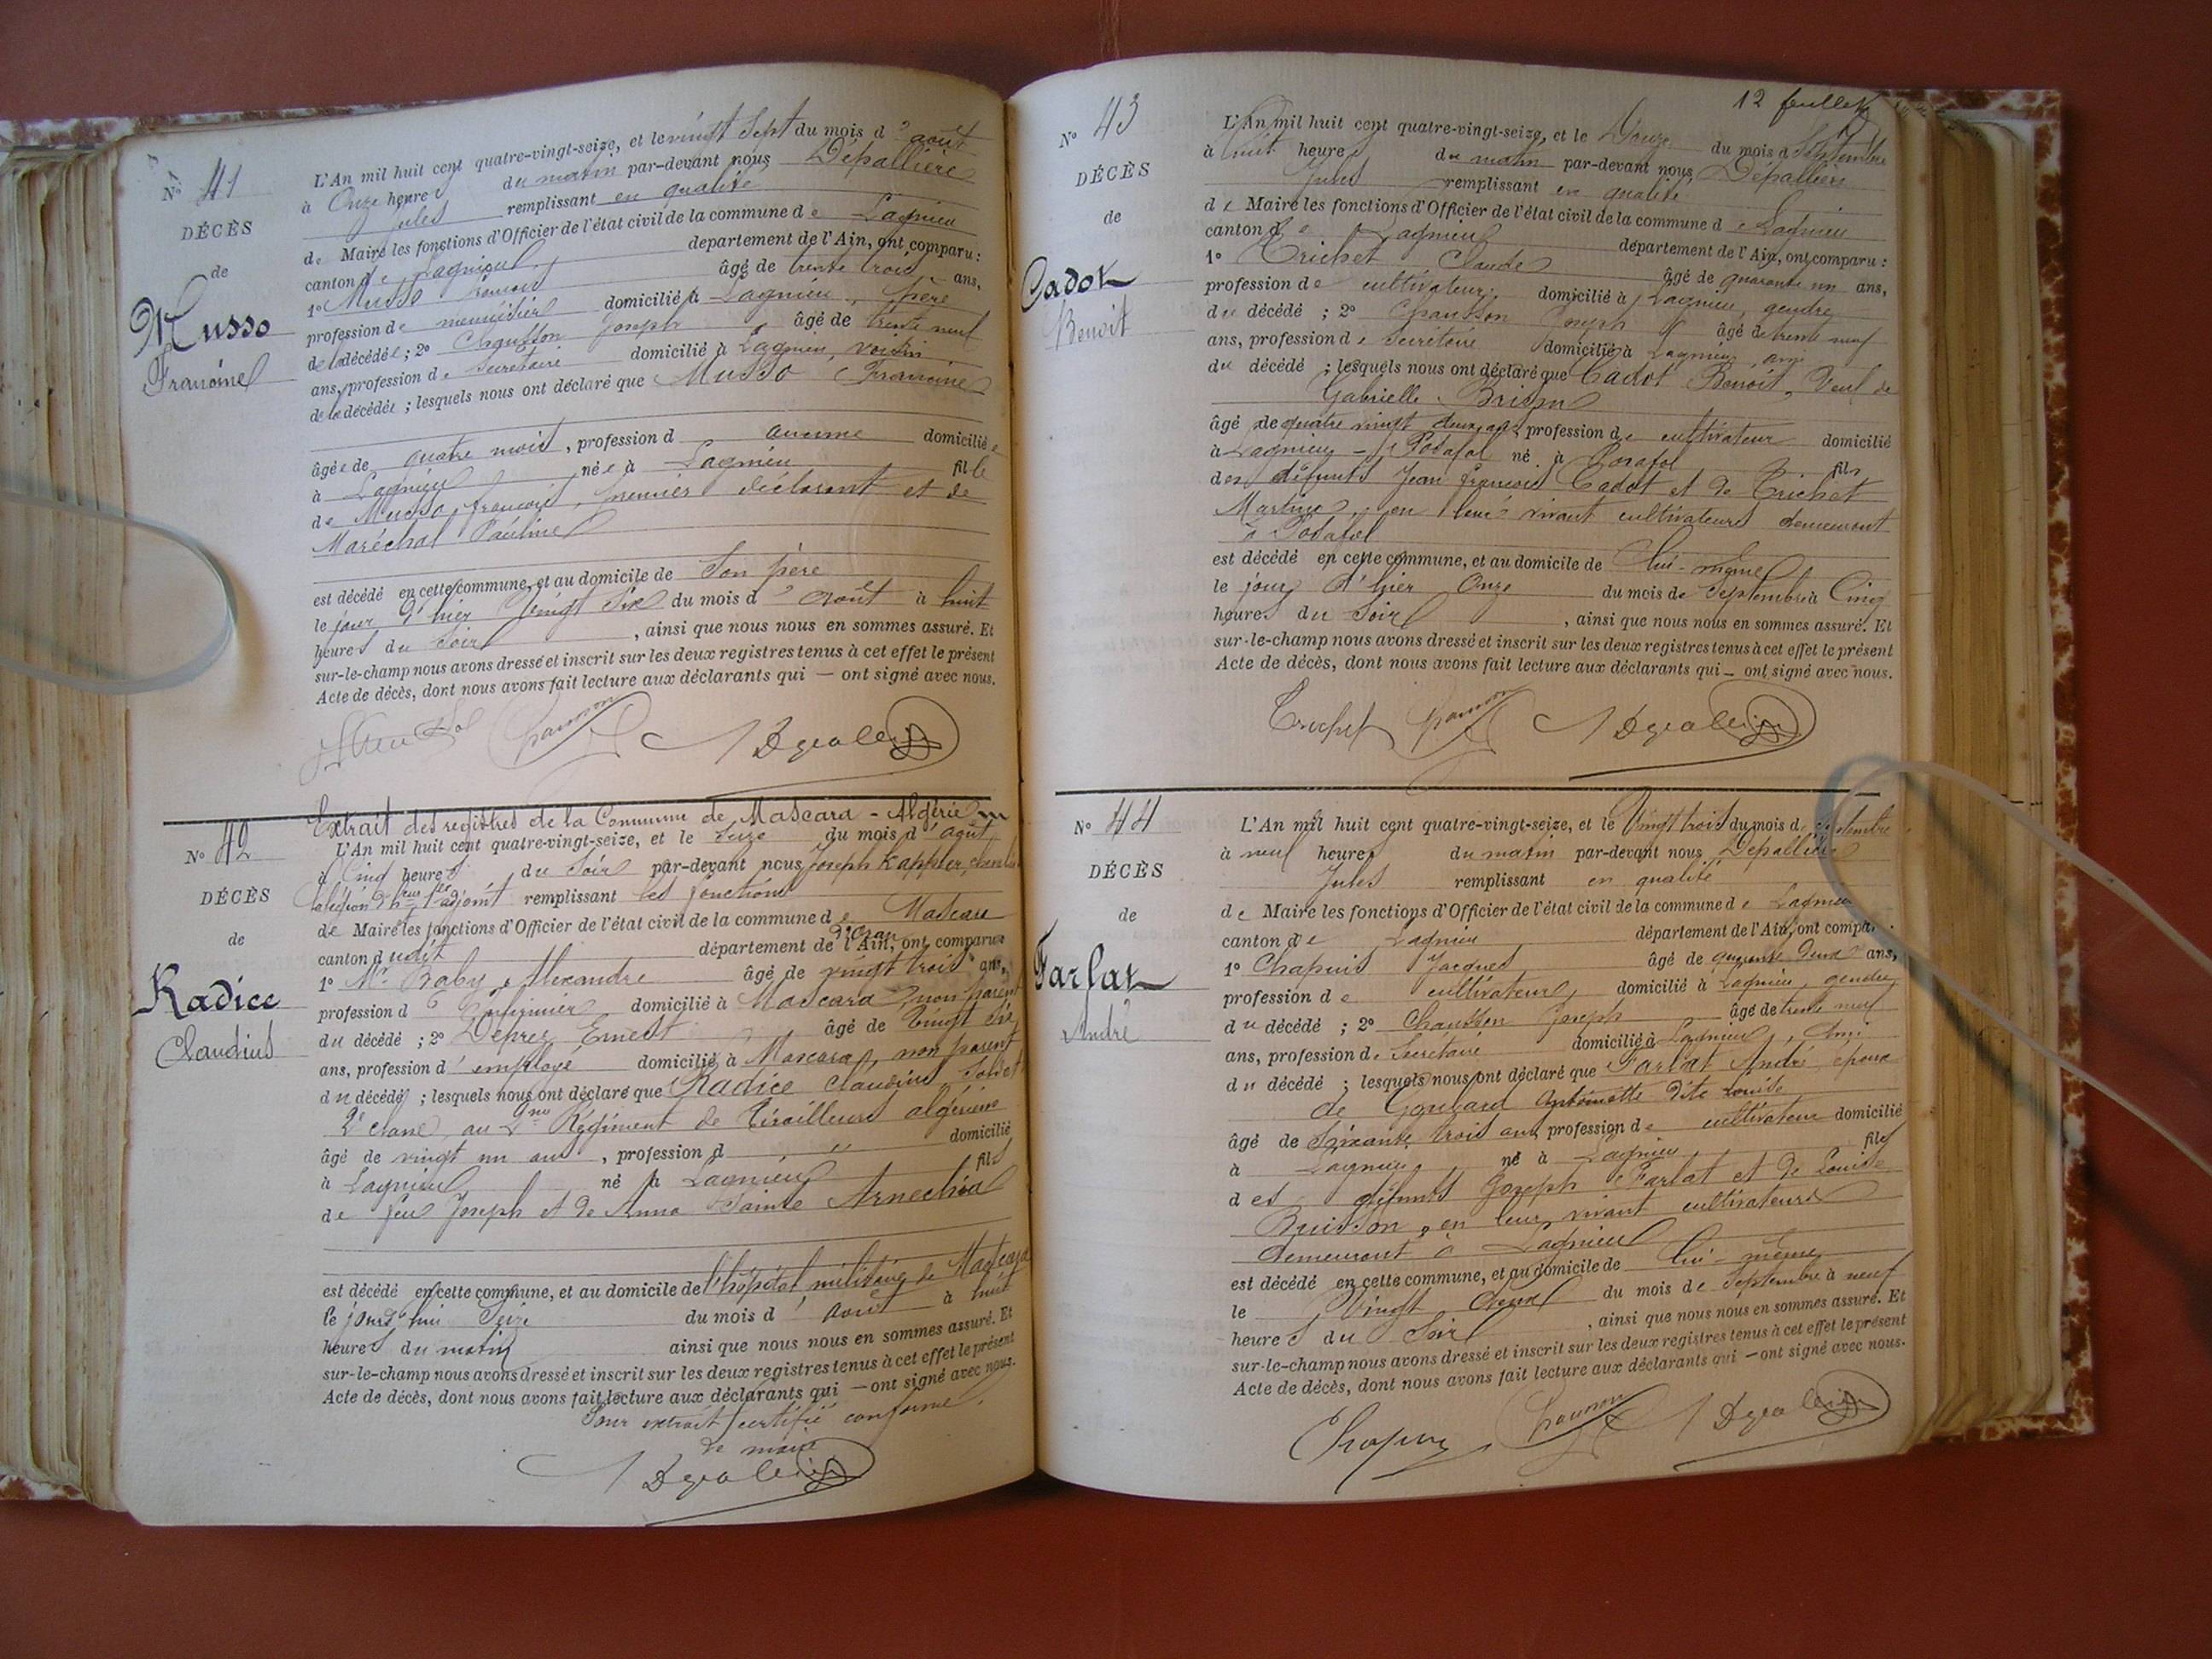 N° 41
DÉCÈS
de
Musso
Francine
L'An mil huit cent quatre-vingt-seize, et le vingt sept du mois d'août
à Onze heures du matin par-devant nous Dépallière
Jules remplissant en qualité
de Maire les fonctions d'Officier de l'état civil de la commune de Lagnieu
canton de Lagnieu département de l'Ain, ont comparu :
1° Musso François âgé de trente trois ans,
profession de menuisier domicilié à Lagnieu, père
de la décédée ; 2° Chausson Joseph âgé de trente neuf
ans, profession de secrétaire domicilié à Lagnieu, voisin
de la décédée ; lesquels nous ont déclaré que Musso Francine
âgée de quatre mois, profession d aucune domiciliée
à Lagnieu née à Lagnieu fille
de Musso François, premier déclarant et de
Maréchal Pauline
est décédé en cette commune, et au domicile de Son père
le jour d'hier vingt six du mois d'août à huit
heures du Soir, ainsi que nous nous en sommes assuré. Et
sur-le-champ nous avons dressé et inscrit sur les deux registres tenus à cet effet le présent
Acte de décès, dont nous avons fait lecture aux déclarants qui — ont signé avec nous.
N° 42
DÉCÈS
de
Radice
Claudius
Extrait des registres de la Commune de Mascara - Algérie
L'An mil huit cent quatre-vingt-seize, et le Seize du mois d'août
à Cinq heures du Soir par-devant nous Joseph Kappler,
1er adjoint remplissant les fonctions
de Maire les fonctions d'Officier de l'état civil de la commune de Mascara
canton dudit département d'Oran de l'Ain, ont comparu
1° Mr Baby Alexandre âgé de vingt trois ans,
profession d'Infirmier domicilié à Mascara, non parent
du décédé ; 2° Deprez Ernest âgé de Vingt six
ans, profession d'employé domicilié à Mascara, non parent
du décédé ; lesquels nous ont déclaré que Radice Claudius Soldat
2e classe au 2me Régiment de Tirailleurs algériens
âgé de vingt un ans, profession d " domicilié
à Lagnieu né à Lagnieu fils
de feu Joseph et de Anna Sainte Arnechia
est décédé en cette commune, et au domicile de l'hôpital militaire de Mascara
le jourd'hui Seize du mois d'août à huit
heures du matin ainsi que nous nous en sommes assuré. Et
sur-le-champ nous avons dressé et inscrit sur les deux registres tenus à cet effet le présent
Acte de décès, dont nous avons fait lecture aux déclarants qui — ont signé avec nous.
Pour extrait certifié conforme.
Le maire
12 feuillet
N° 43
DÉCÈS
de
Cadot
Benoit
L'An mil huit cent quatre-vingt-seize, et le Douze du mois de Septembre
à huit heures du matin par-devant nous Dépallière
Jules remplissant en qualité
de Maire les fonctions d'Officier de l'état civil de la commune de Lagnieu
canton de Lagnieu département de l'Ain, ont comparu :
1° Trichet Claude âgé de quarante un ans,
profession de cultivateur domicilié à Lagnieu, gendre
du décédé ; 2° Chausson Joseph âgé de trente neuf
ans, profession de Secrétaire domicilié à Lagnieu, ami
du décédé ; lesquels nous ont déclaré que Cadot Benoit, Veuf de
Gabrielle
âgé de quatre vingt deux ans, profession de cultivateur domicilié
à Lagnieu - Posafol né à Posafol fils
des défunts Jean François Cadot et de Trichet
Martine, en leur vivant cultivateurs demeurant
à Posafol
est décédé en cette commune, et au domicile de lui-même
le jour d'hier Onze du mois de Septembre à Cinq
heures du Soir, ainsi que nous nous en sommes assuré. Et
sur-le-champ nous avons dressé et inscrit sur les deux registres tenus à cet effet le présent
Acte de décès, dont nous avons fait lecture aux déclarants qui — ont signé avec nous.
Trichet Chausson
N° 44
DÉCÈS
de
Farlat
André
L'An mil huit cent quatre-vingt-seize, et le Vingt trois du mois de Septembre
à neuf heures du matin par-devant nous Dépallière
Jules remplissant en qualité
de Maire les fonctions d'Officier de l'état civil de la commune de Lagnieu
canton de Lagnieu département de l'Ain, ont compa
1° Chapuis Jacques âgé de quarante deux ans,
profession de cultivateur, domicilié à Lagnieu, gendre
du décédé ; 2° Chausson Joseph âgé de trente neuf
ans, profession de Secrétaire domicilié à Lagnieu, Ami
du décédé ; lesquels nous ont déclaré que Farlat André époux
de Goubard Antoinette dite Louise
âgé de Soixante trois ans, profession de cultivateur domicilié
à Lagnieu, né à Lagnieu fils
des défunts Joseph Farlat et de Louise
Buisson, en leur vivant cultivateurs
demeurant à Lagnieu
est décédé en cette commune, et au domicile de lui-même
le Vingt deux du mois de Septembre à neuf
heures du Soir, ainsi que nous nous en sommes assuré. Et
sur-le-champ nous avons dressé et inscrit sur les deux registres tenus à cet effet le présent
Acte de décès, dont nous avons fait lecture aux déclarants qui — ont signé avec nous.
Chapuis Chausson